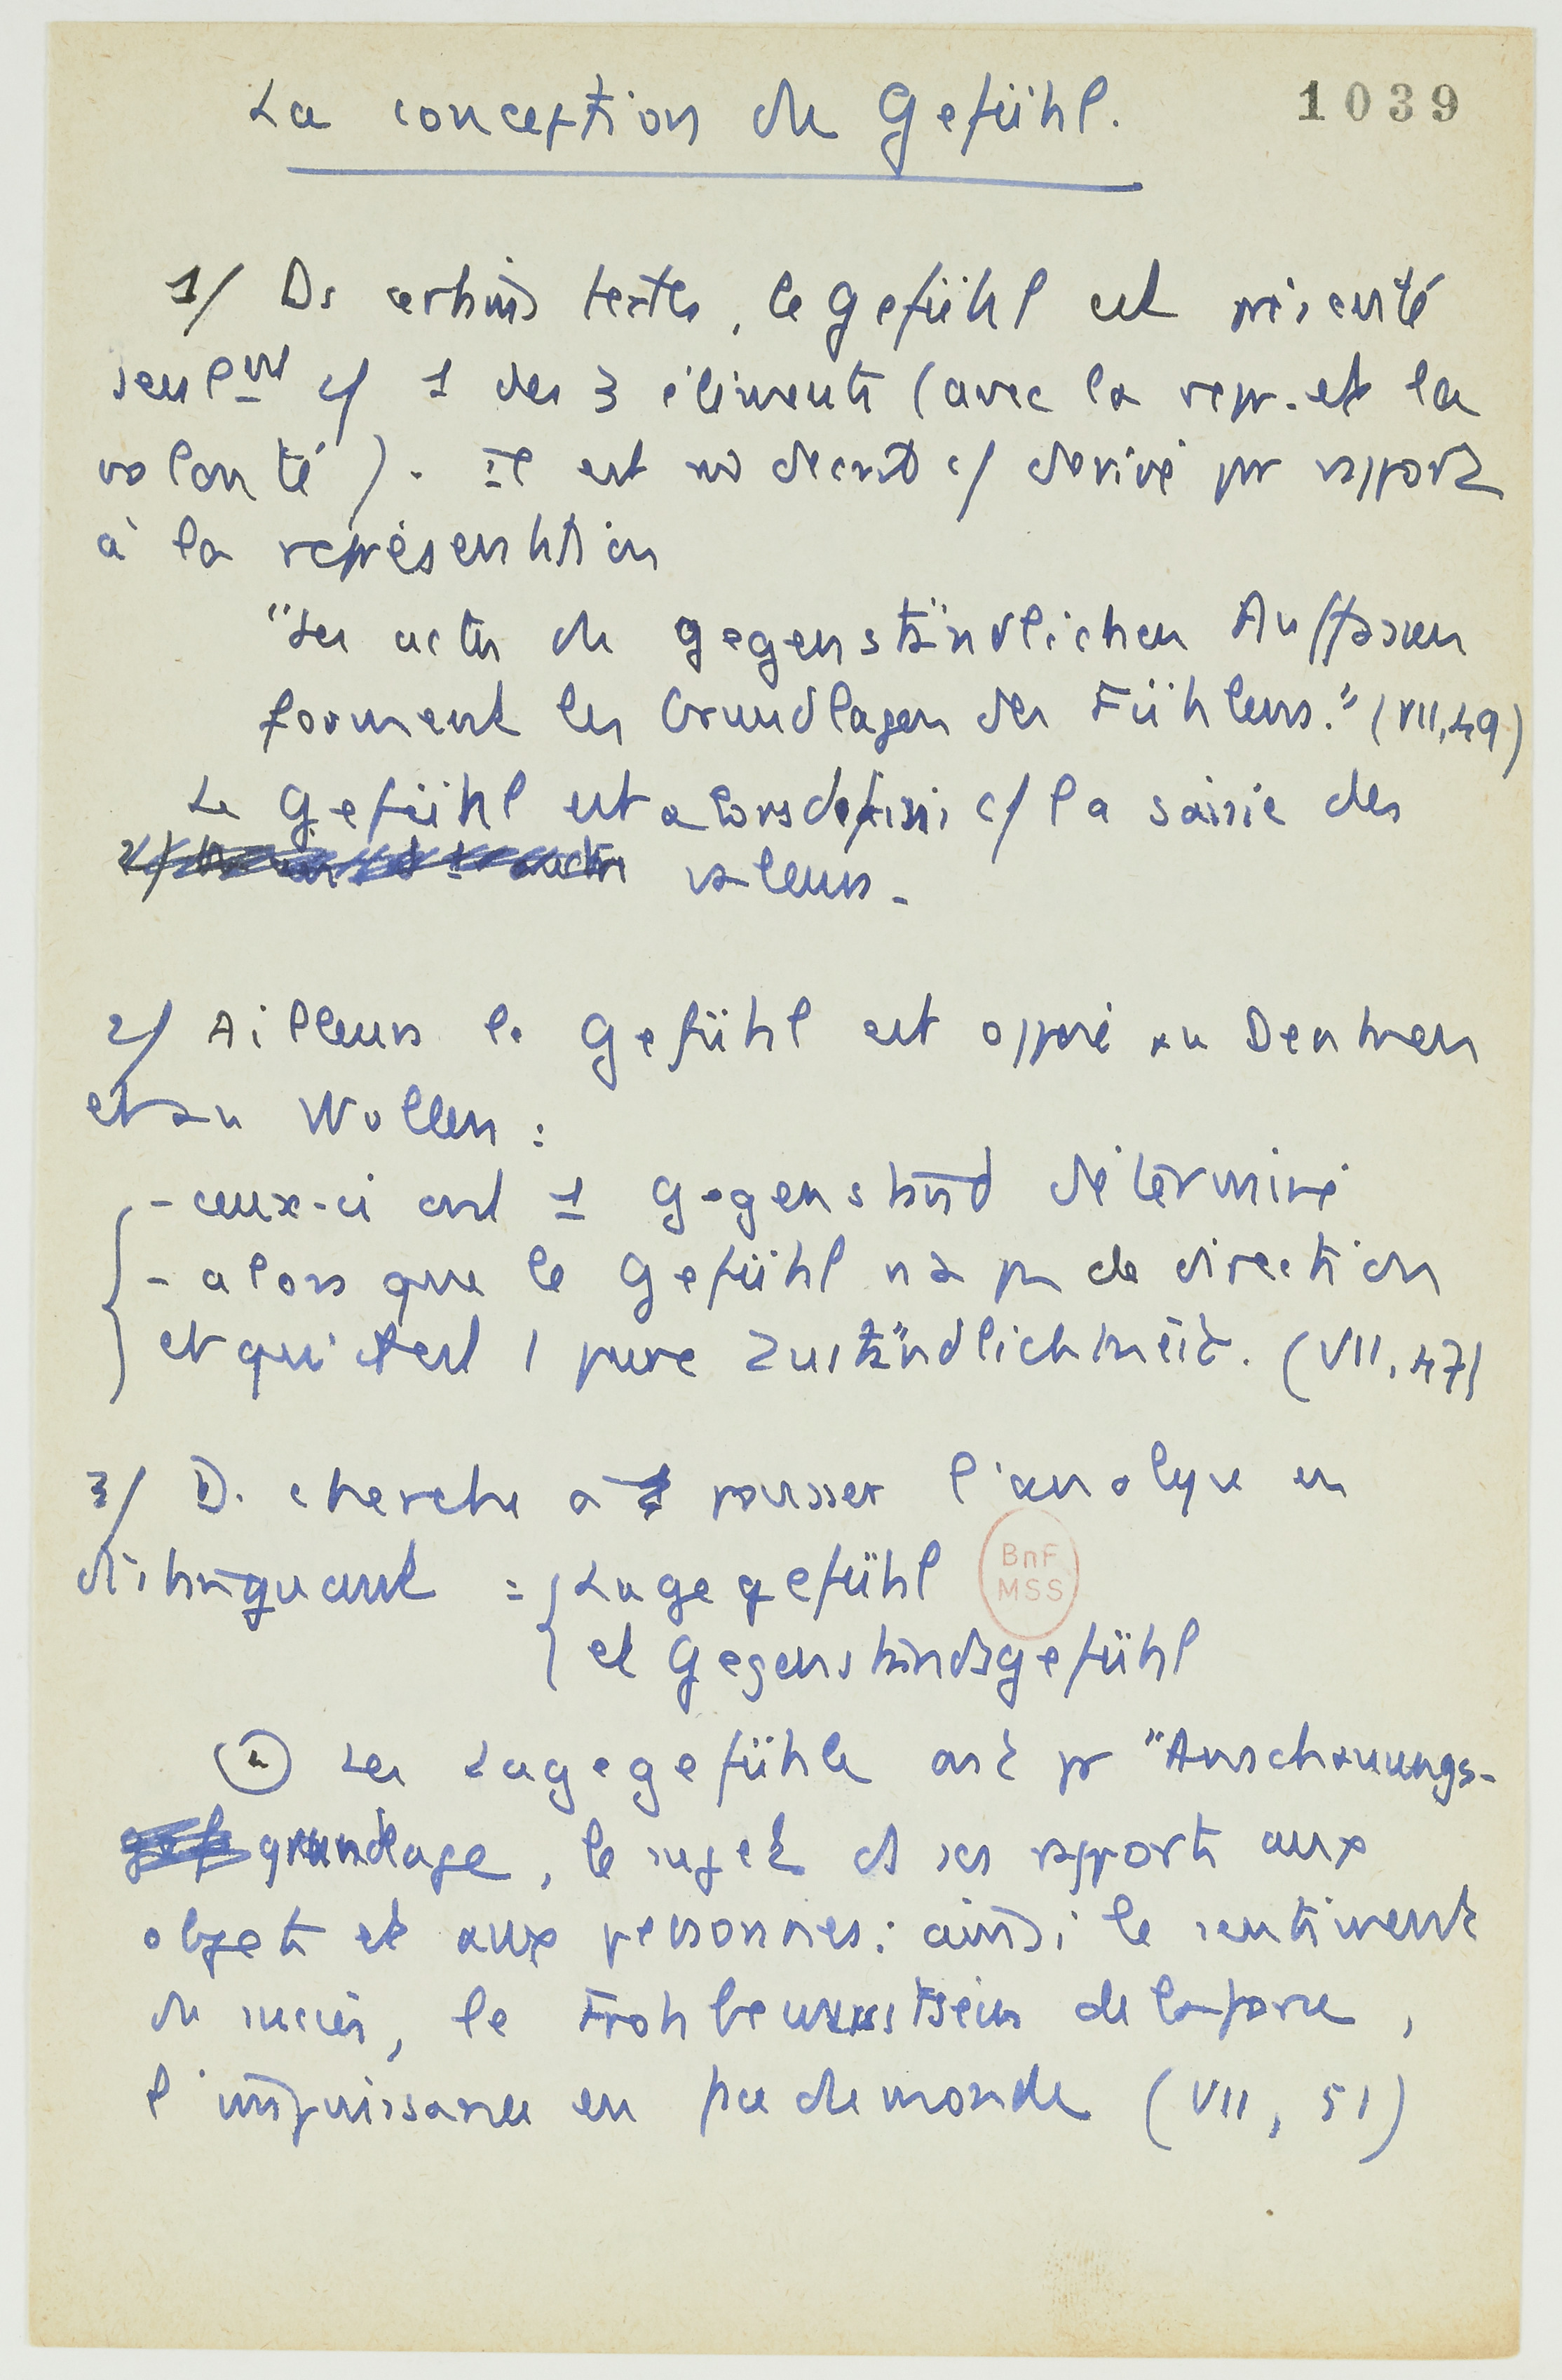 La conception du Gefühl.
1039
1/ Ds certains textes, le Gefühl est présenté
seulmt c/ 1 des 3 éléments (avec la repr. et la
volonté). Il est décrit c/ dérivé pr rapport
à la représentation
"Les actes du gegenständlichen Auffassen
forment les Grundlagen des Fühlens." (VII, 49)
Le Gefühl est alors défini c/ la saisie des
valeurs.
2/ Ailleurs le Gefühl est opposé au Denken
et au Wollen :
- ceux-ci ont 1 Gegenstand déterminé
- alors que le Gefühl n'a pas de direction
et qui est 1 pure Zuständlichkeit. (VII, 47)
3/ D. cherche à pousser l'analyse en
distinguant : Lagegefühl
BnF
MSS
et Gegenstandsgefühl
Les Lagegefühle ont pr "Anschauungs-
grundlage, le sujet ds ses rapports aux
objets et aux personnes : ainsi le sentiment
du succès, le Frohbewusstsein de la force,
l'impuissance en face du monde (VII, 51)